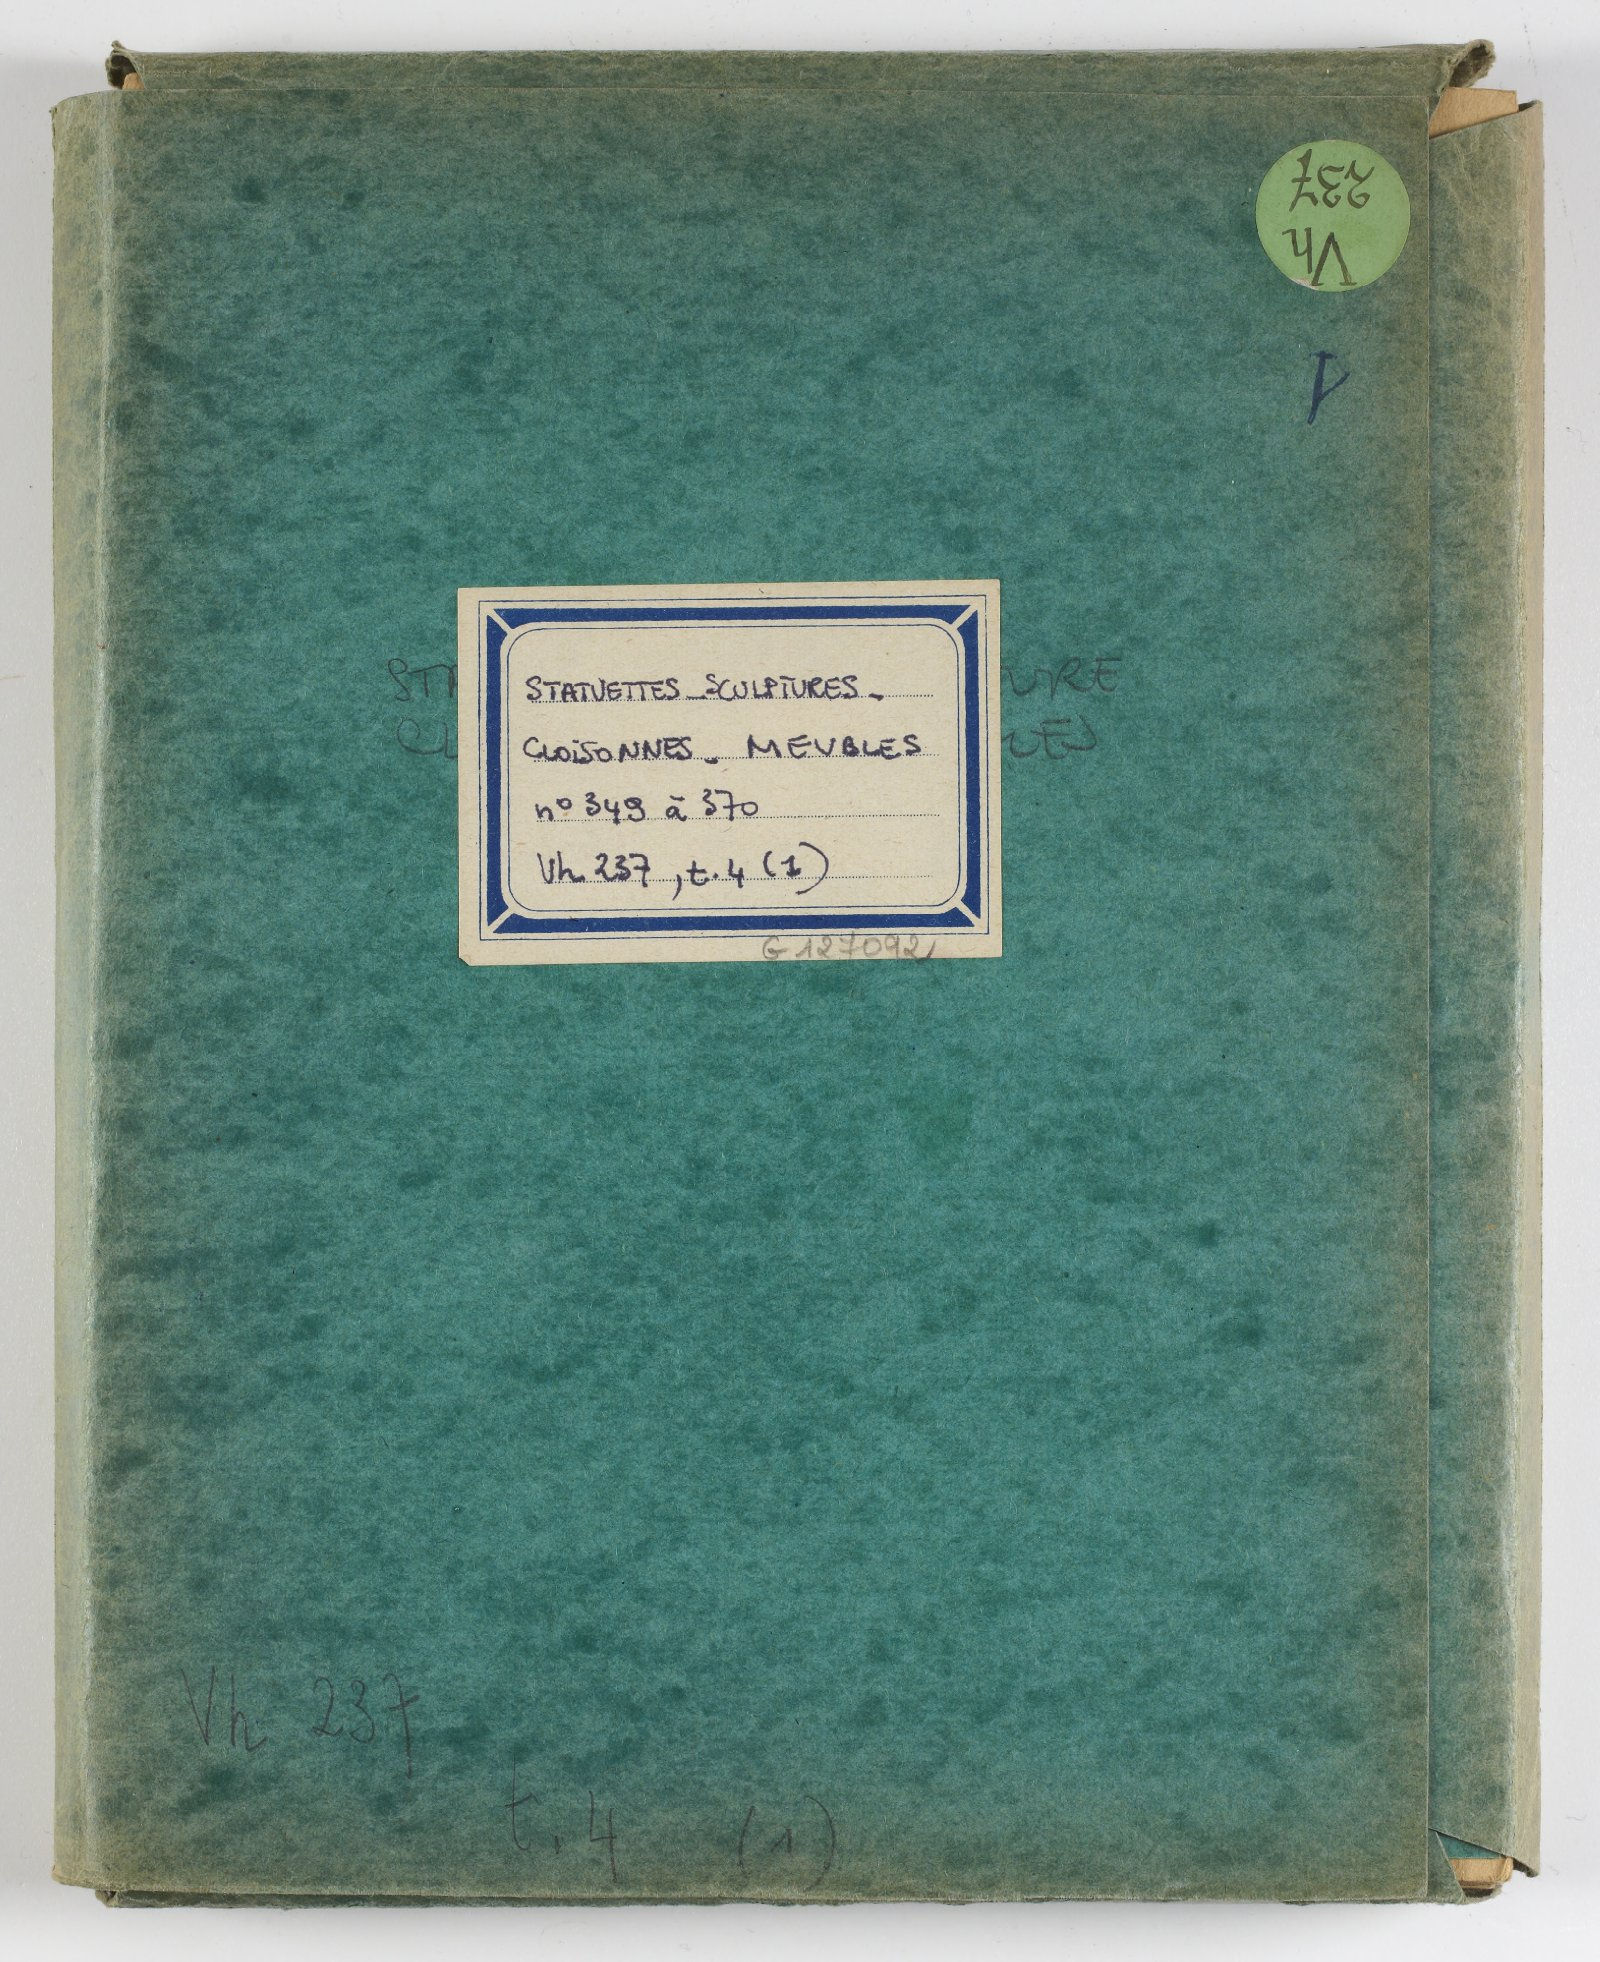 Vh
237
1
STATUETTES_SCULPTURES_
CLOISONNES_ MEUBLES
n° 349 à 370
Vh. 237, t. 4 (1)
G 127092
Vh 237
t. 4 (1)